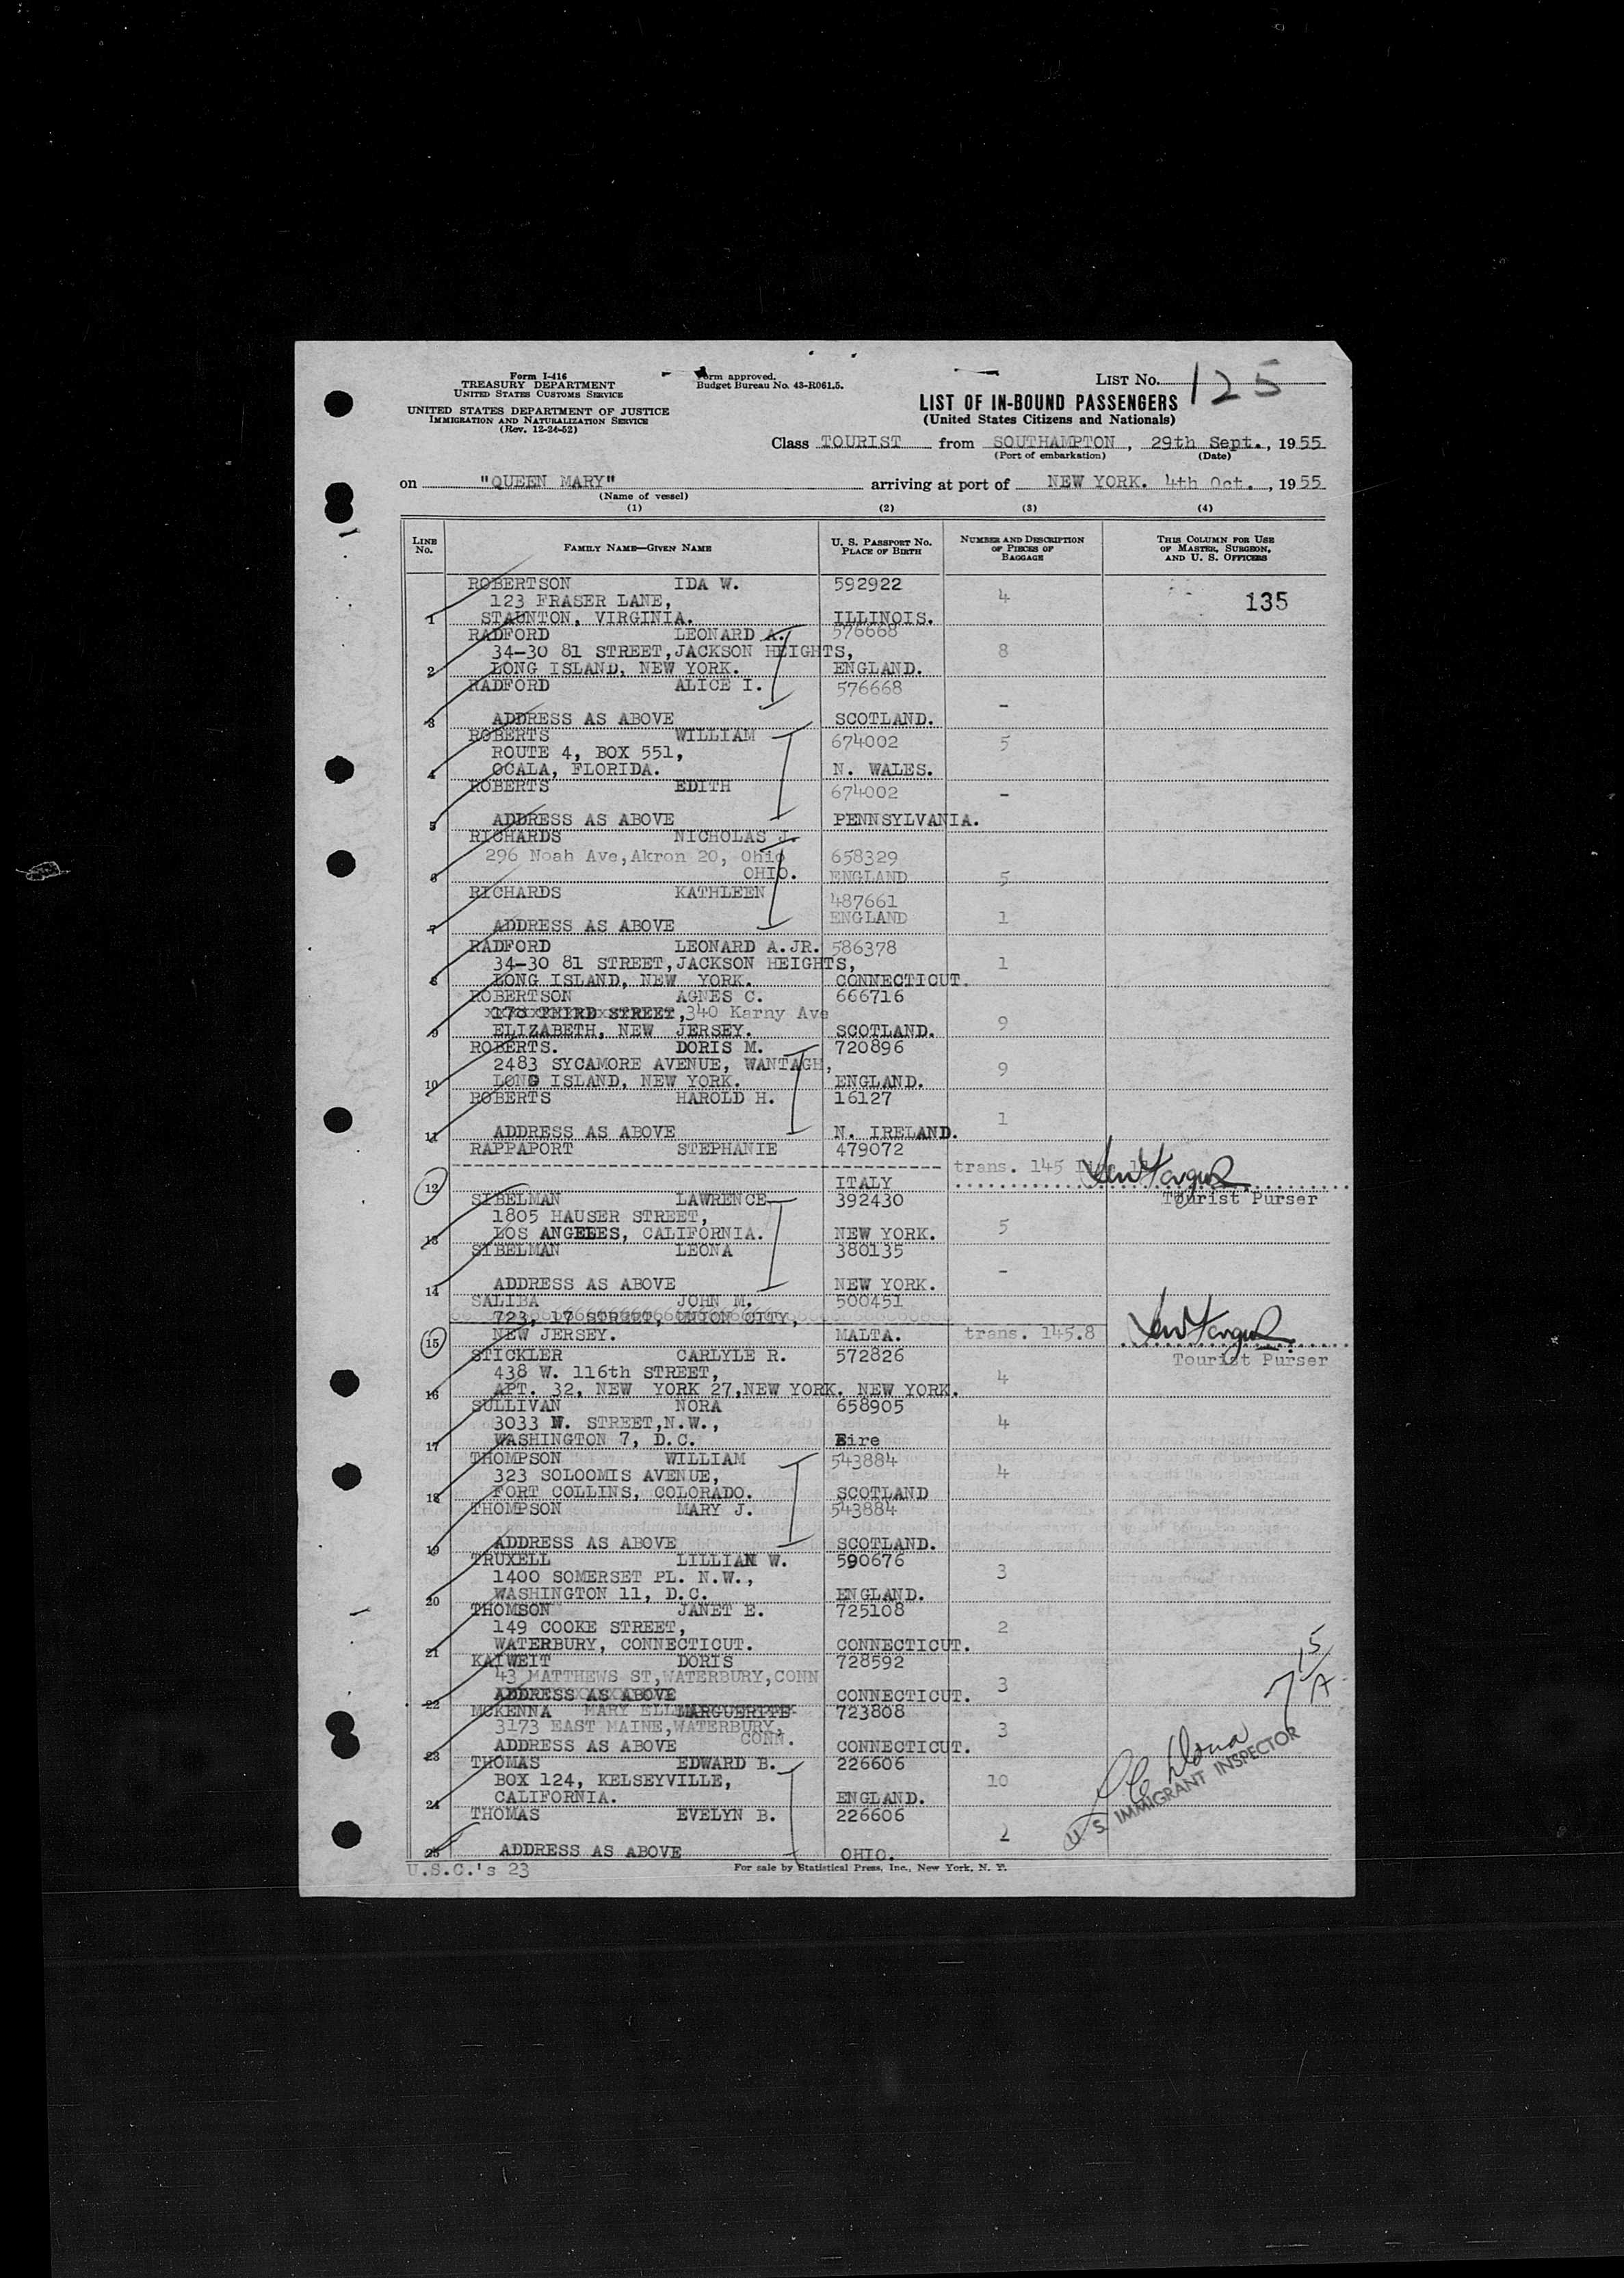 Form I-416
TREASURY DEPARTMENT
UNITED STATES CUSTOMS SERVICE
UNITED STATES DEPARTMENT OF JUSTICE
IMMIGRATION AND NATURALIZATION SERVICE
(Rev. 12-24-52)
Form approved.
Budget Bureau No. 43-R061.5.
LIST NO. 125
LIST OF IN-BOUND PASSENGERS
(United States Citizens and Nationals)
Class TOURIST from SOUTHAMPTON, 29th Sept., 1955
(Port of embarkation) (Date)
on "QUEEN MARY" arriving at port of NEW YORK. 4th Oct., 1955
(Name of vessel)
(1) (2) (3) (4)
LINE NO.
FAMILY NAME—GIVEN NAME
U. S. PASSPORT NO.
PLACE OF BIRTH
NUMBER AND DESCRIPTION
OF PIECES OF
BAGGAGE
THIS COLUMN FOR USE
OF MASTER, SURGEON,
AND U. S. OFFICERS
ROBERTSON IDA W. 592922
123 FRASER LANE, 4 135
1 STAUNTON, VIRGINIA. ILLINOIS.
RADFORD LEONARD A. 576668
34-30 81 STREET, JACKSON HEIGHTS, 8
2 LONG ISLAND, NEW YORK. ENGLAND.
RADFORD ALICE I. 576668
-
3 ADDRESS AS ABOVE SCOTLAND.
ROBERTS WILLIAM 674002 5
ROUTE 4, BOX 551,
4 OCALA, FLORIDA. N. WALES.
ROBERTS EDITH 674002 -
5 ADDRESS AS ABOVE PENNSYLVANIA.
RICHARDS NICHOLAS J.
296 Noah Ave, Akron 20, Ohio 658329
6 OHIO. ENGLAND 5
RICHARDS KATHLEEN 487661
ENGLAND 1
7 ADDRESS AS ABOVE
RADFORD LEONARD A. JR. 586378
34-30 81 STREET, JACKSON HEIGHTS, 1
8 LONG ISLAND, NEW YORK. CONNECTICUT.
ROBERTSON AGNES C. 666716
178 THIRD STREET, 340 Karny Ave 9
9 ELIZABETH, NEW JERSEY. SCOTLAND.
ROBERTS. DORIS M. 720896
2483 SYCAMORE AVENUE, WANTAGH, 9
10 LONG ISLAND, NEW YORK. ENGLAND.
ROBERTS HAROLD H. 16127
1
11 ADDRESS AS ABOVE N. IRELAND.
RAPPAPORT STEPHANIE 479072
trans. 145
12 ITALY
Tourist Purser
SIBELMAN LAWRENCE 392430
1805 HAUSER STREET, 5
13 LOS ANGELES, CALIFORNIA. NEW YORK.
SIBELMAN LEONA 380135
-
14 ADDRESS AS ABOVE NEW YORK.
SALIBA JOHN M. 500451
723, 17 STREET, UNION CITY,
15 NEW JERSEY. MALTA. trans. 145.8
Tourist Purser
STICKLER CARLYLE R. 572826
438 W. 116th STREET, 4
16 APT. 32, NEW YORK 27, NEW YORK. NEW YORK.
SULLIVAN NORA 658905
3033 N. STREET, N.W., 4
17 WASHINGTON 7, D.C. Eire
THOMPSON WILLIAM 543884
323 SOLOOMIS AVENUE, 4
18 FORT COLLINS, COLORADO. SCOTLAND
THOMPSON MARY J. 543884
19 ADDRESS AS ABOVE SCOTLAND.
TRUXELL LILLIAN W. 590676
1400 SOMERSET PL. N.W., 3
20 WASHINGTON 11, D.C. ENGLAND.
THOMSON JANET E. 725108
149 COOKE STREET, 2
21 WATERBURY, CONNECTICUT. CONNECTICUT.
KAIWEIT DORIS 728592
43 MATTHEWS ST, WATERBURY, CONN 3
22 ADDRESS AS ABOVE CONNECTICUT.
MCKENNA MARY ELL MARGUERITE 723808
3173 EAST MAINE, WATERBURY, CONN. 3
23 ADDRESS AS ABOVE CONNECTICUT.
THOMAS EDWARD B. 226606
BOX 124, KELSEYVILLE, 10
24 CALIFORNIA. ENGLAND.
THOMAS EVELYN B. 226606
2
25 ADDRESS AS ABOVE OHIO.
U. S. IMMIGRANT INSPECTOR
U.S.C.'s 23
For sale by Statistical Press, Inc., New York, N. Y.